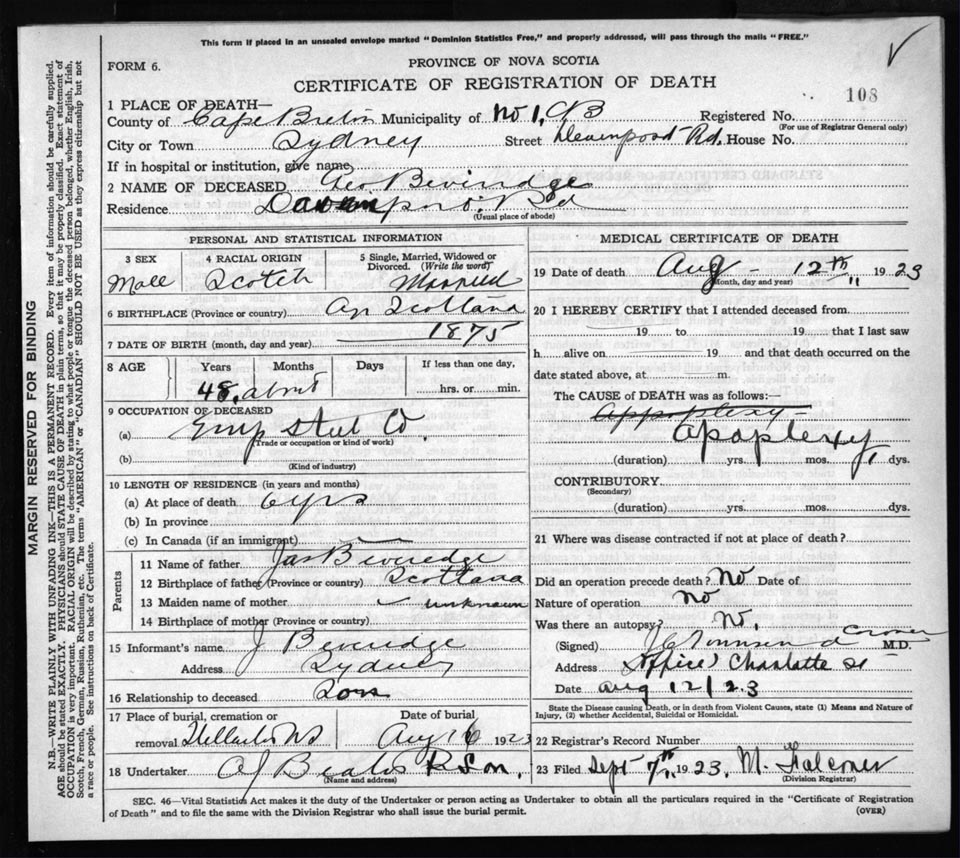 This form if placed in an unsealed envelope marked "Dominion Statistics Free," and properly addressed, will pass through the mails "FREE."
FORM 6.
PROVINCE OF NOVA SCOTIA
CERTIFICATE OF REGISTRATION OF DEATH
108
1 PLACE OF DEATH—
County of Cape Breton Municipality of No 1, CB Registered No.
(For use of Registrar General only)
City or Town Sydney Street Rd. House No.
If in hospital or institution, give name
2 NAME OF DECEASED Geo Beviridge
Residence Rd
(Usual place of abode)
PERSONAL AND STATISTICAL INFORMATION
3 SEX 4 RACIAL ORIGIN 5 Single, Married, Widowed or Divorced. (Write the word)
Male Scotch Married
6 BIRTHPLACE (Province or country) Scotland
7 DATE OF BIRTH (month, day and year) 1875
8 AGE Years Months Days If less than one day,
48, about hrs. or min.
9 OCCUPATION OF DECEASED
(a) Emp Steel Co.
(Trade or occupation or kind of work)
(b)
(Kind of industry)
10 LENGTH OF RESIDENCE (in years and months)
(a) At place of death 6 yrs
(b) In province
(c) In Canada (if an immigrant)
Parents
11 Name of father Jas Beveredge
12 Birthplace of father (Province or country) Scotland
13 Maiden name of mother unknown
14 Birthplace of mother (Province or country)
15 Informant's name J Beveredge
Address Sydney
16 Relationship to deceased Son
17 Place of burial, cremation or Date of burial
removal Aug 16 1923
18 Undertaker & Son.
(Name and address)
MEDICAL CERTIFICATE OF DEATH
19 Date of death Aug - 12th 1923
(Month, day and year)
20 I HEREBY CERTIFY that I attended deceased from
19 to 19 that I last saw
h alive on 19 and that death occurred on the
date stated above, at m.
The CAUSE of DEATH was as follows:—
Appoplexy
apoplexy
(duration) yrs. mos. dys.
CONTRIBUTORY
(Secondary)
(duration) yrs. mos. dys.
21 Where was disease contracted if not at place of death?
Did an operation precede death? No Date of
Nature of operation No
Was there an autopsy? No.
(Signed) Coroner M.D.
Address (office) Charlotte St
Date Aug 12/23
State the Disease causing Death, or in death from Violent Causes, state (1) Means and Nature of Injury, (2) whether Accidental, Suicidal or Homicidal.
22 Registrar's Record Number
23 Filed Sept 7th 1923. M. Falconer
(Division Registrar)
SEC. 46—Vital Statistics Act makes it the duty of the Undertaker or person acting as Undertaker to obtain all the particulars required in the "Certificate of Registration
of Death" and to file the same with the Division Registrar who shall issue the burial permit.
(OVER)
MARGIN RESERVED FOR BINDING
N.B.—WRITE PLAINLY WITH UNFADING INK—THIS IS A PERMANENT RECORD. Every item of information should be carefully supplied.
AGE should be stated EXACTLY. PHYSICIANS should STATE CAUSE OF DEATH in plain terms, so that it may be properly classified. Exact statement of
OCCUPATION is very important. RACIAL ORIGIN will be described by stating to what people or tongue the deceased person belonged, whether English, Irish,
Scotch, French, German, Russian, Ruthenian, etc. The terms "AMERICAN" or "CANADIAN" SHOULD NOT BE USED as they express citizenship but not
a race or people. See instructions on back of Certificate.